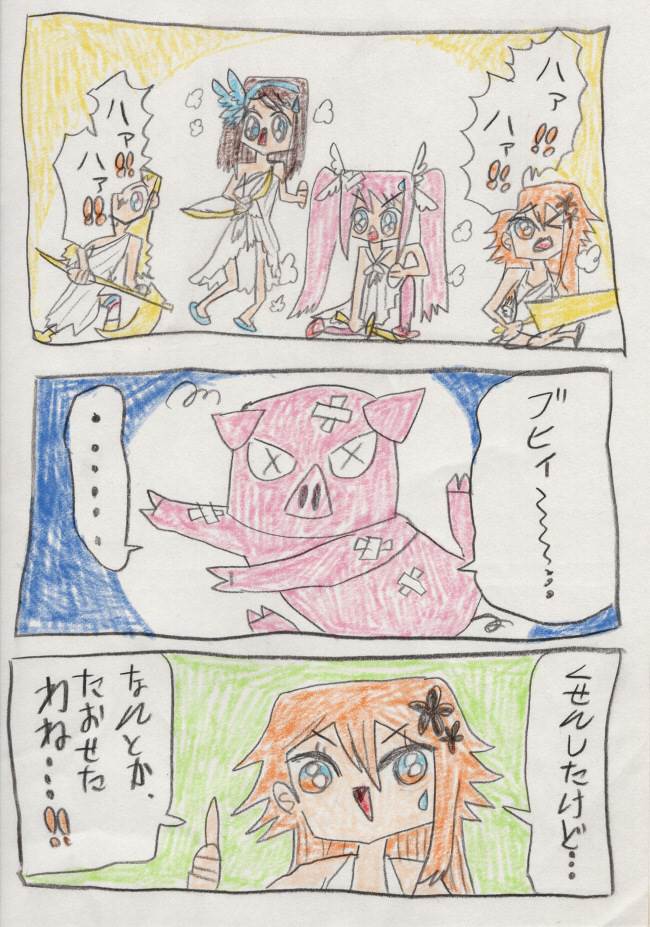 ハァ!!
ハァ!!
ハァ!!
ハァ!!
ブヒィ〜〜〜…
・・・・・・
くせんしたけど…
なんとか、
たおせた
わね…!!